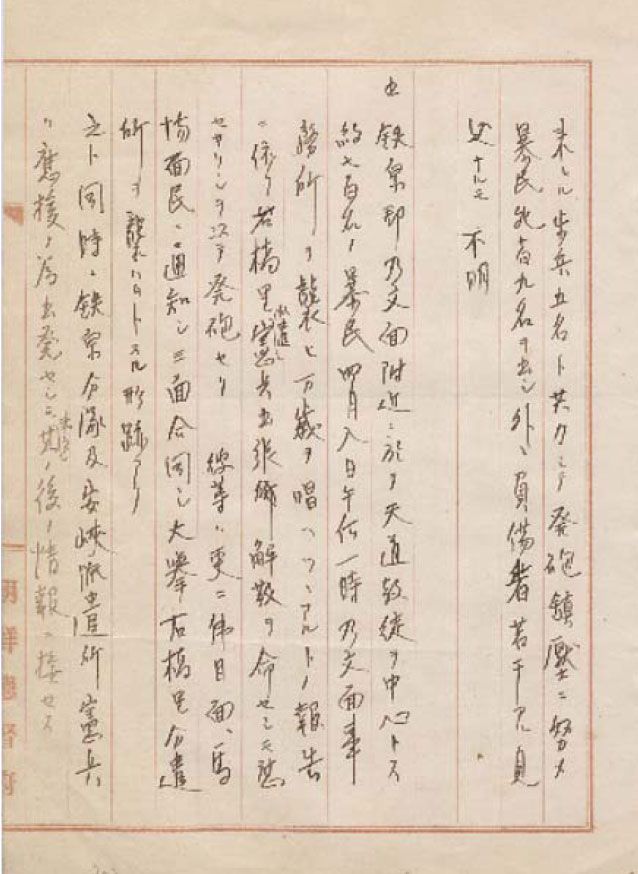 来レル歩兵五名ト共力シテ発砲鎮壓ニ努メ
暴民死者九名ヲ出シ外ニ負傷者若干アル見
込ナルモ不明
鉄原郡乃文面附近ニ於テ天道教徒ヲ中心トス
約七百名ノ暴民四月八日午后一時乃文面事
務所ヲ襲ヒ万歳ヲ唱ヘツヽアルトノ報告
ニ依リ石橋里派遣憲兵出張 解散ヲ命セシモ應
セサリシヲ以テ発砲セリ 彼等ハ更ニ 面、馬
場面民ニ通知シ三面合同シ大擧石橋里分遣
所ヲ襲ハムトスル形跡アリ
之ト同時ニ鉄原分隊及安峡派遣所憲兵
ハ應援ノ為出発セシモ其ノ後ノ情報ニ接セス
朝鮮總督府